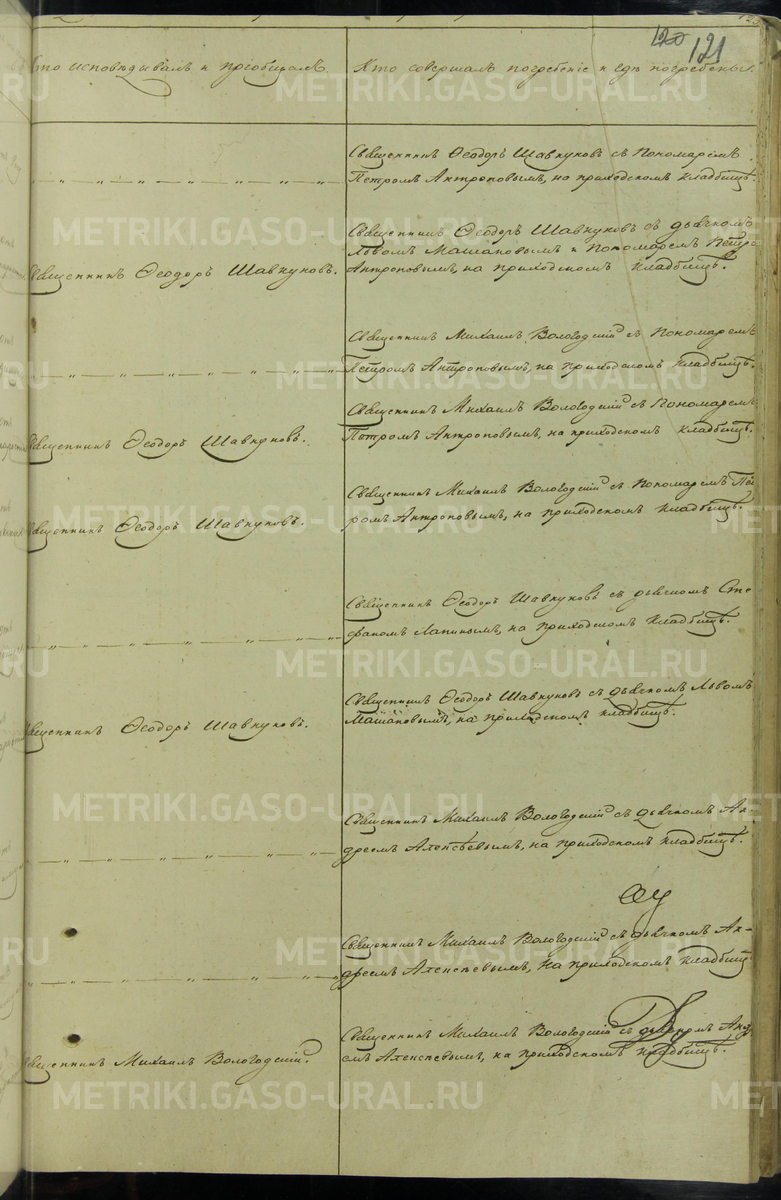 120 121
Кто исповѣдывалъ и пріобщалъ.
Кто совершалъ погребеніе и гдѣ погребены.
Священникъ Ѳеодоръ Шавкуновъ съ Пономаремъ
Петромъ Антроповымъ, на приходскомъ кладбищѣ.
Священникъ Ѳеодоръ Шавкуновъ.
Священникъ Ѳеодоръ Шавкуновъ съ дьячкомъ
Львомъ Машановымъ и Пономаремъ Петро
Антроповымъ, на приходскомъ кладбищѣ.
Священникъ Михаилъ Вологодскій съ Пономаремъ
Петромъ Антроповымъ, на приходскомъ кладбищѣ.
Священникъ Ѳеодоръ Шавкуновъ.
Священникъ Михаилъ Вологодскій съ Пономаремъ
Петромъ Антроповымъ, на приходскомъ кладбищѣ.
Священникъ Ѳеодоръ Шавкуновъ.
Священникъ Михаилъ Вологодскій съ Пономаремъ Пет
ромъ Антроповымъ, на приходскомъ кладбищѣ.
Священникъ Ѳеодоръ Шавкуновъ съ дьячкомъ Сте
фаномъ Лапинымъ, на приходскомъ кладбищѣ.
Священникъ Ѳеодоръ Шавкуновъ.
Священникъ Ѳеодоръ Шавкуновъ съ дьячкомъ Львомъ
Машановымъ, на приходскомъ кладбищѣ.
Священникъ Михаилъ Вологодскій съ дьячкомъ Ан-
дреемъ Алексѣевымъ, на приходскомъ кладбищѣ.
Священникъ Михаилъ Вологодскій съ дьячкомъ Ан-
дреемъ Алексѣевымъ, на приходскомъ кладбищѣ
Священникъ Михаилъ Вологодскій.
Священникъ Михаилъ Вологодскій съ дьячкомъ Андр
емъ Алексѣевымъ, на приходскомъ кладбищѣ.
METRIKI.GASO-URAL.RU